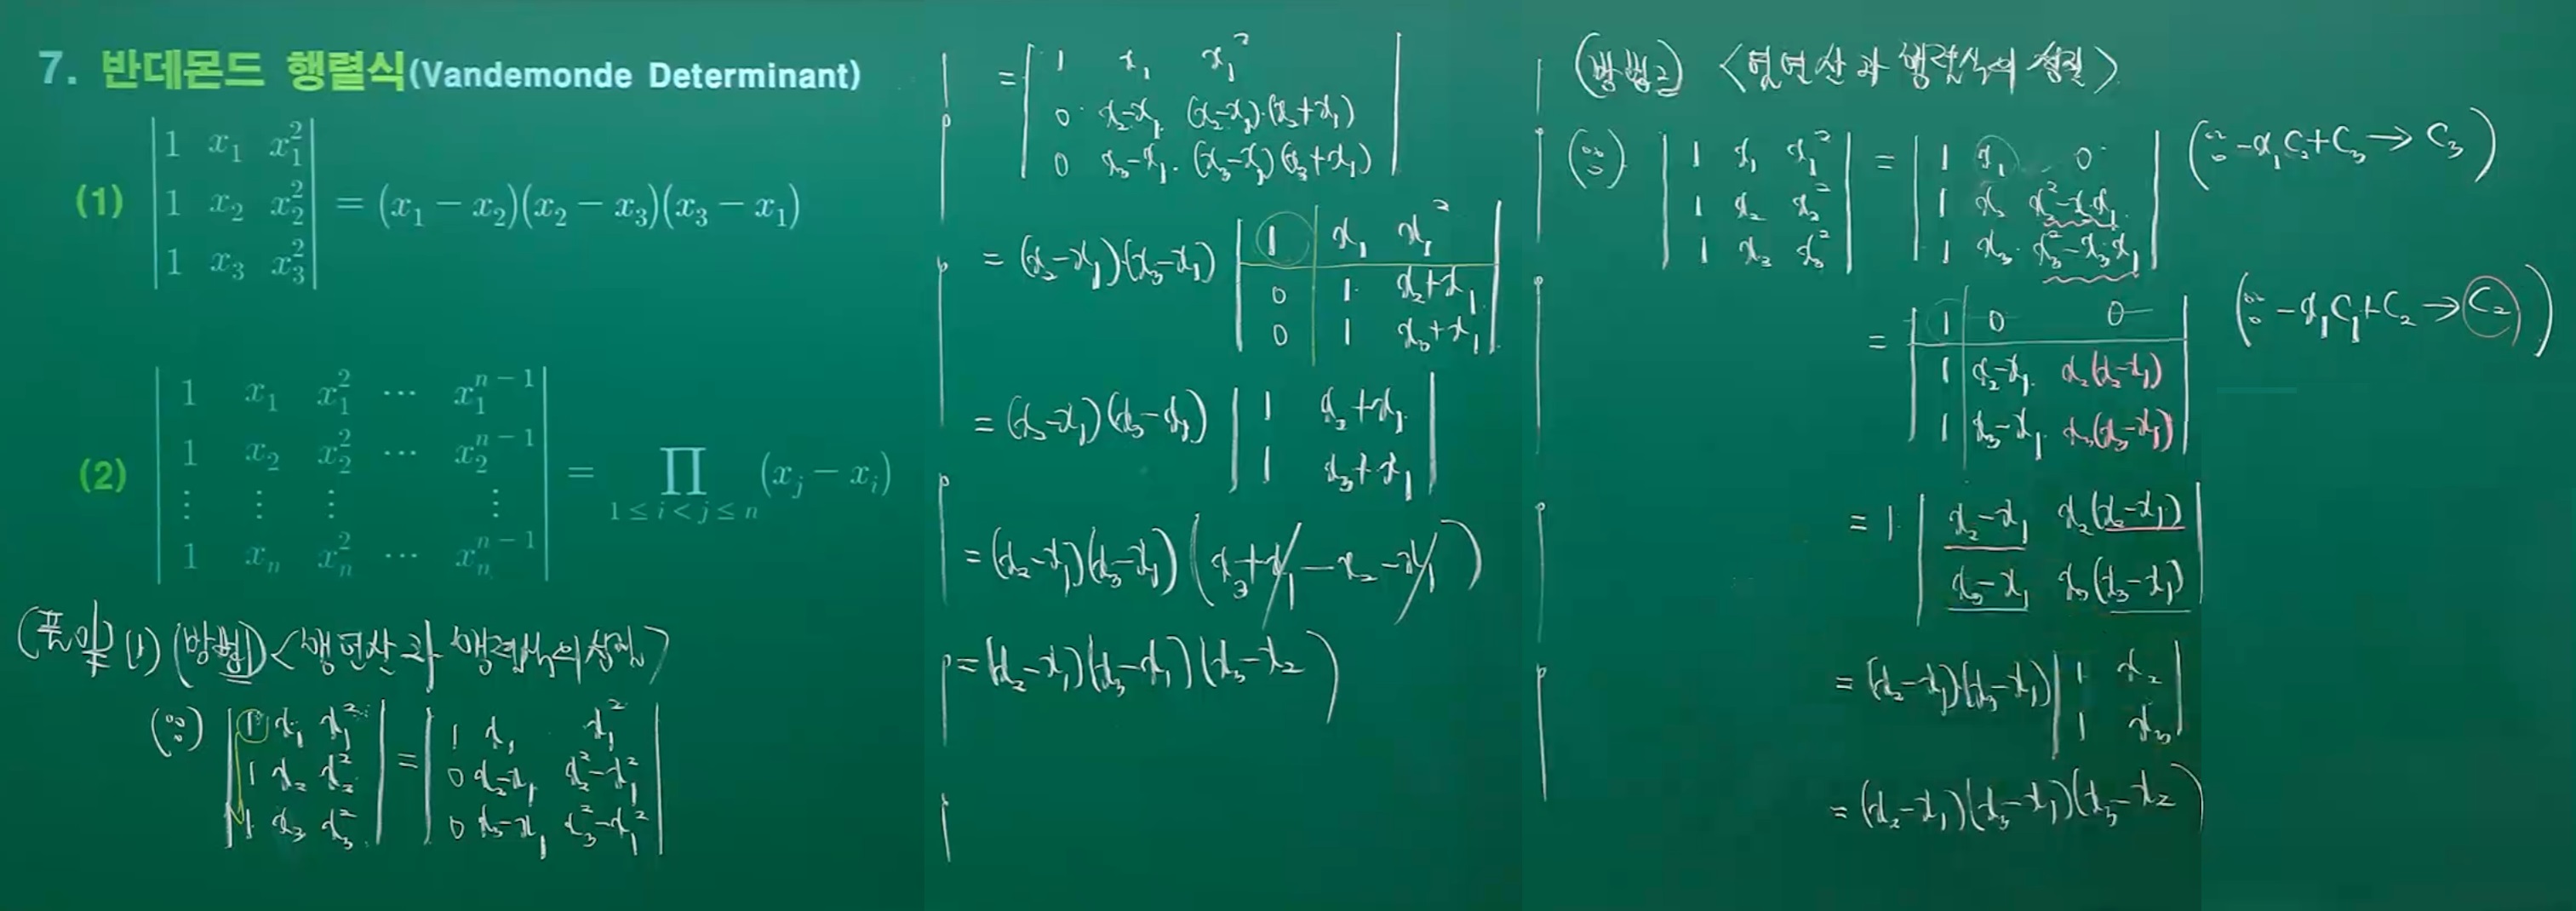 7. 반데몬드 행렬식(Vandemonde Determinant)
(1) | 1 x₁ x₁² |
| 1 x₂ x₂² | = (x₁ − x₂)(x₂ − x₃)(x₃ − x₁)
| 1 x₃ x₃² |
(2) | 1 x₁ x₁² ⋯ x₁ⁿ⁻¹ |
| 1 x₂ x₂² ⋯ x₂ⁿ⁻¹ |
| ⋮ ⋮ ⋮ ⋮ | = ∏ 1≤i<j≤n (xⱼ − xᵢ)
| 1 xₙ xₙ² ⋯ xₙⁿ⁻¹ |
(풀이) (1) (방법1) <행연산과 행렬식의 성질>
(∵) | 1 x₁ x₁² | = | 1 x₁ x₁² |
| 1 x₂ x₂² | | 0 x₂−x₁ x₂²−x₁² |
| 1 x₃ x₃² | | 0 x₃−x₁ x₃²−x₁² |
= | 1 x₁ x₁² |
| 0 x₂−x₁ (x₂−x₁)·(x₂+x₁) |
| 0 x₃−x₁ (x₃−x₁)(x₃+x₁) |
= (x₂−x₁)·(x₃−x₁) | 1 x₁ x₁² |
| 0 1 x₂+x₁ |
| 0 1 x₃+x₁ |
= (x₂−x₁)(x₃−x₁) | 1 x₂+x₁ |
| 1 x₃+x₁ |
= (x₂−x₁)(x₃−x₁)(x₃+x₁−x₂−x₁)
= (x₂−x₁)(x₃−x₁)(x₃−x₂)
(방법2) <열연산과 행렬식의 성질>
(∵) | 1 x₁ x₁² | = | 1 x₁ 0 | (∵ −x₁C₂+C₃ → C₃)
| 1 x₂ x₂² | | 1 x₂ x₂²−x₂x₁ |
| 1 x₃ x₃² | | 1 x₃ x₃²−x₃x₁ |
= | 1 0 0 | (∵ −x₁C₁+C₂ → C₂)
| 1 x₂−x₁ x₂(x₂−x₁) |
| 1 x₃−x₁ x₃(x₃−x₁) |
= 1· | x₂−x₁ x₂(x₂−x₁) |
| x₃−x₁ x₃(x₃−x₁) |
= (x₂−x₁)(x₃−x₁) | 1 x₂ |
| 1 x₃ |
= (x₂−x₁)(x₃−x₁)(x₃−x₂)